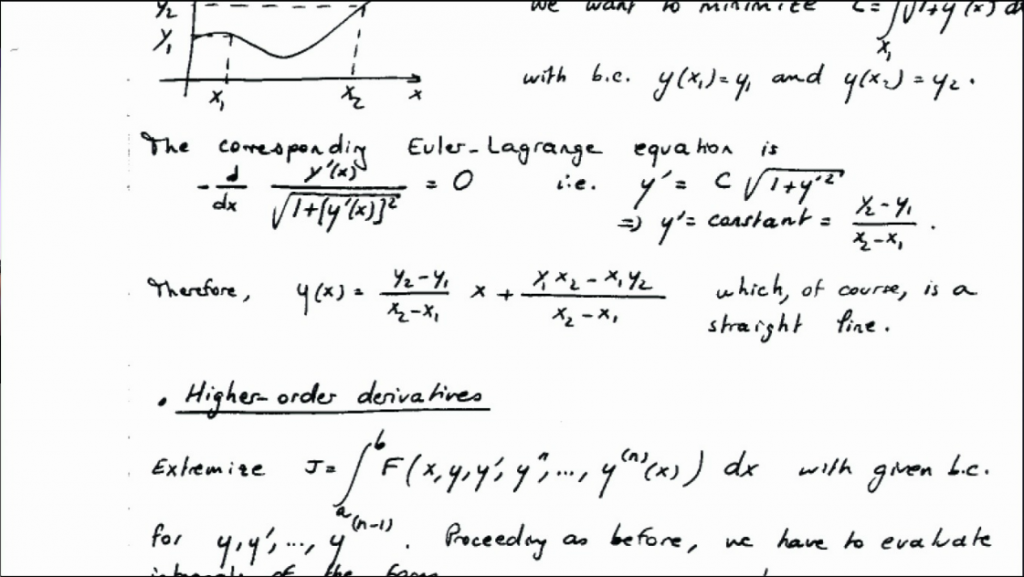 y₂
y₁
x₁ x₂ x
we want to minimize L = ∫ √1+y'(x) dx
x₁
with b.c. y(x₁)=y₁ and y(x₂)=y₂.
The corresponding Euler-Lagrange equation is
-d/dx y'(x)/√1+[y'(x)]² = 0 i.e. y' = C √1+y'²
⇒ y' = constant = y₂-y₁/x₂-x₁.
Therefore, y(x) = y₂-y₁/x₂-x₁ x + y₁x₂-x₁y₂/x₂-x₁ which, of course, is a
straight line.
• Higher-order derivatives
Extremize J = ∫ₐᵇ F(x,y,y',y'',...,y⁽ⁿ⁾(x)) dx with given b.c.
for y,y',...,y⁽ⁿ⁻¹⁾. Proceeding as before, we have to evaluate
integrals of the form